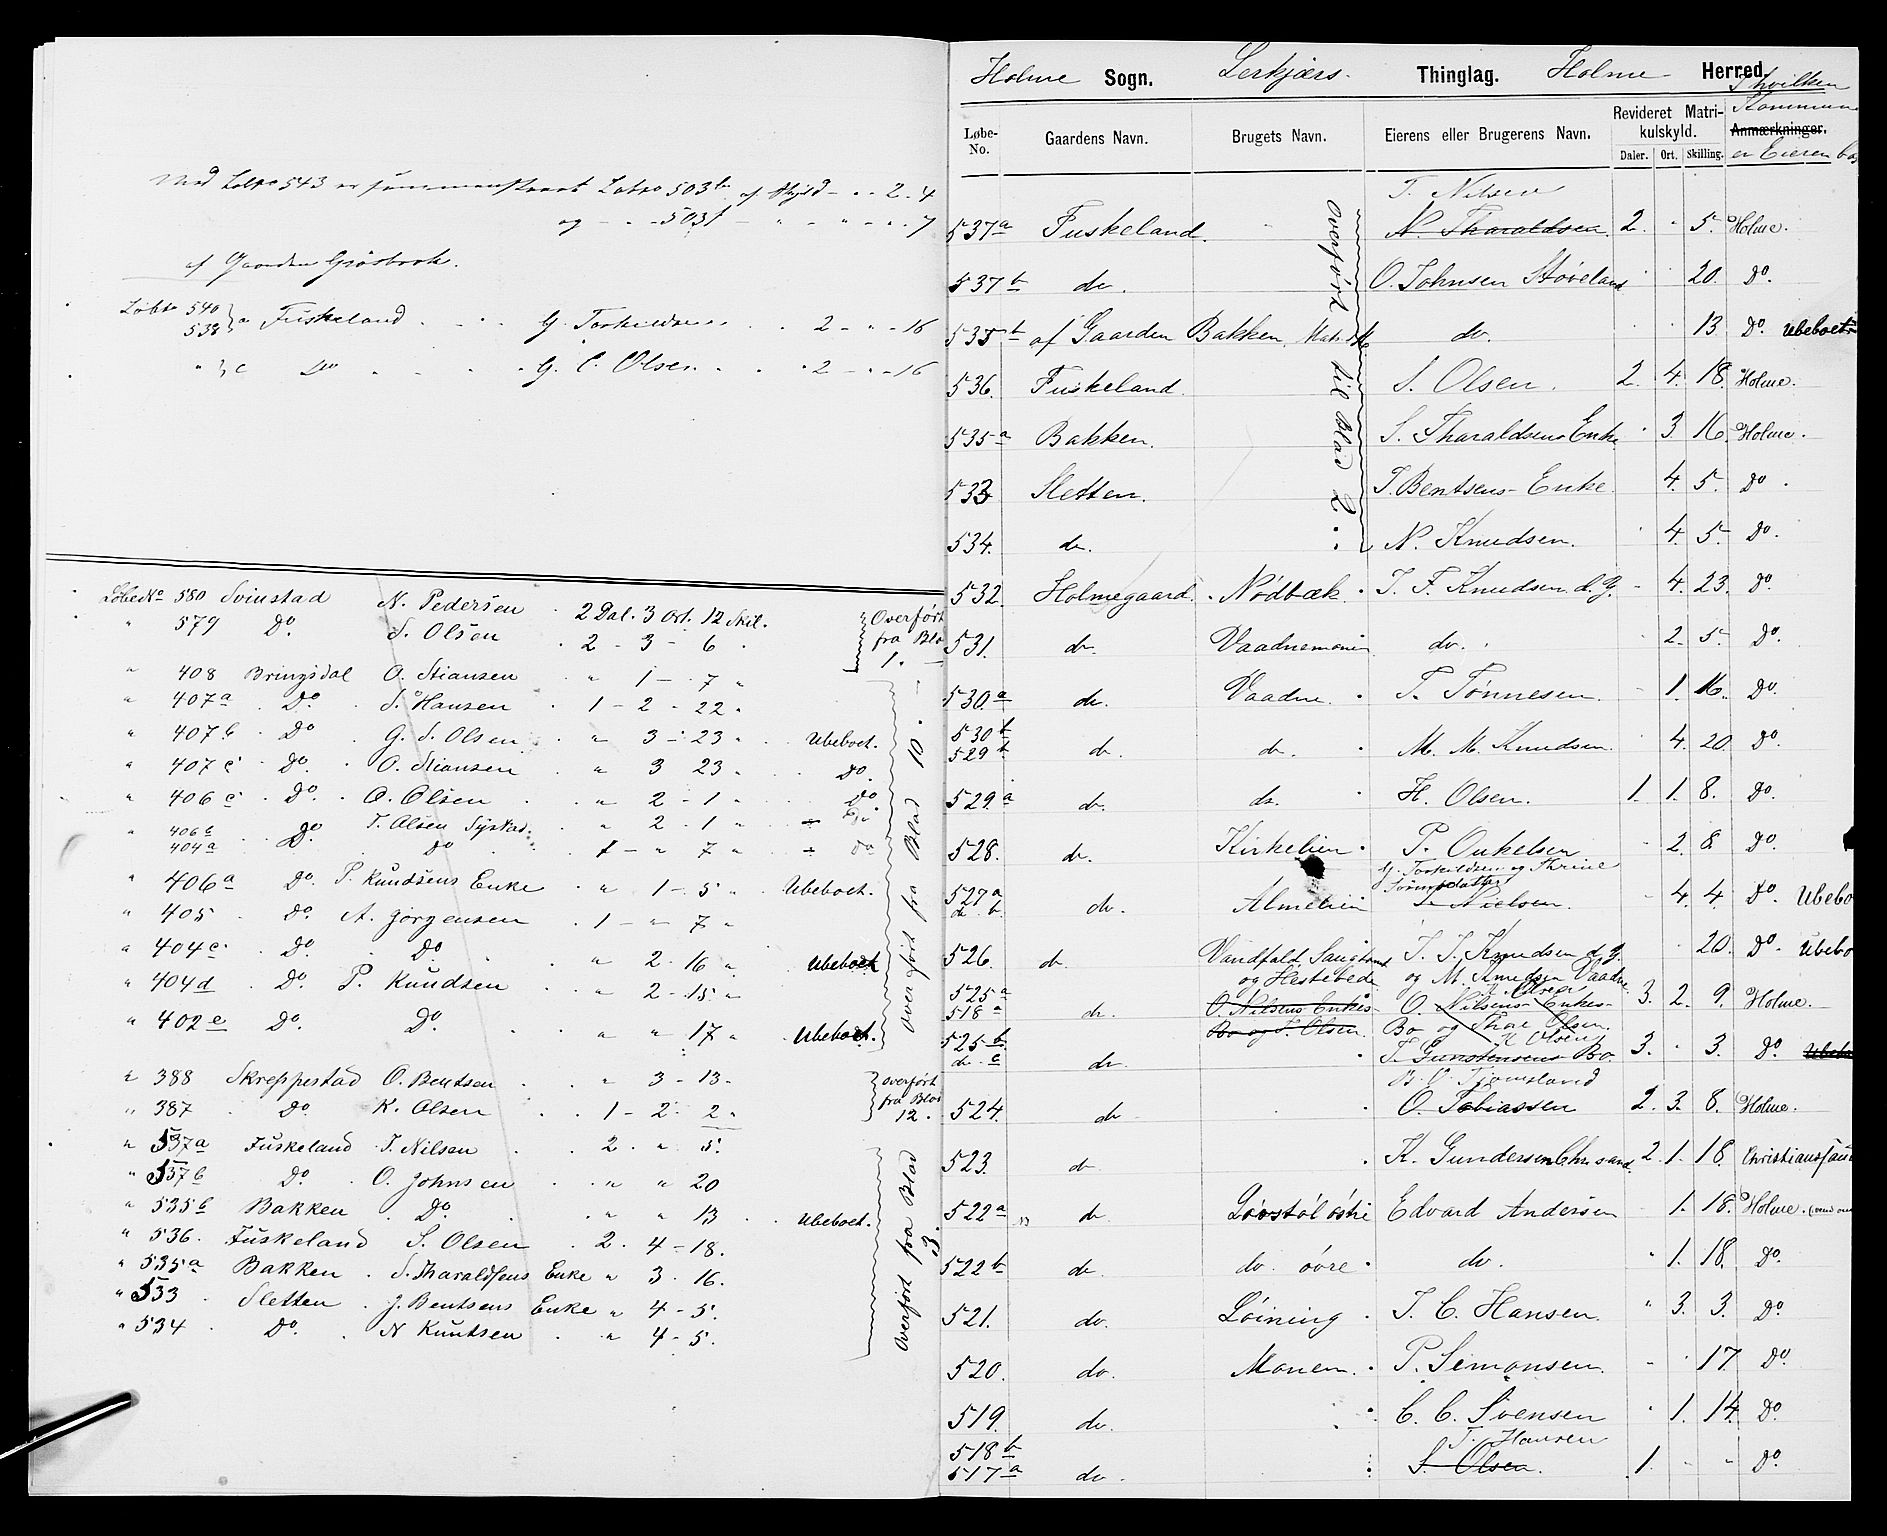 Med Løbno 543 er sammenskreet Løbno 503b af Skyld - . . 2 . 4
og - . - 503f - " - " - . 7
af Gaarden Grøsbrok.
Løbno 540 538 } a Fuskeland . . . G. Torkildsen . . 2 - " - 16
" } c Do . . . . G. C. Olsen . . . 2 - " - 16
LøbeNo 580 Svinstad N. Pedersen . 2 Dal. 3 Ort. 12 Skil. Overført
" 579 Do. S. Olsen . 2 - 3 - 6 . fra Blad 1.
" 408 Bringsdal O. Stiansen . " 1 - 7 "
" 407a . Do . S. Hansen . 1 - 2 - 22 .
" 407b . Do . G. S. Olsen . " 3 - 23 " . Ubeboet.
" 407c . Do. . O. Stiansen " 3 23 " . . Do.
" 406c . Do. . O. Olsen . . " 2 - 1 " . . Do
" 406b . . Do T. Olsen Sysk . " 2 . 1 "
404a Do. Do . 1 - " 7 " Do
" 406a Do. P. Knudsens Enke . " 1 - 5 " . Ubeboet.
" 405 . Do. A. Jörgensen . 1 - " 7 "
" 404c . Do Do . " 2 . 16 " Ubeboet
" 404d . Do. P. Knudsen . " 2 - 15 "
" 402e Do. Do. . . " " 17 " Ubeboet.
overført fra Blad 10.
" 388 Skreppestad O. Bentsen . . " 3 - 13 - overført
" 387 . Do K. Olsen . . 1 - 2 . 2 . fra Blad 12.
" 537a Fuskeland . T. Nilsen . . 2 . " 5.
" 537b Do . O. Johnsen . . " " 20
" 535b Bakken . Do. . . " " 13 . . Ubeboet.
" 536. Fuskeland S. Olsen . 2. 4 - 18.
" 535a Bakken . S. Tharaldsens Enke " 3 . 16.
" 533 . Sletten . J. Bentsens Enke " 4 - 5.
" 534 . Do. . N Knudsen . . " 4 - 5.
Overført fra Blad 3.
Holme Sogn. Lerkjærs Thinglag. Holme Herred.
Løbe-No. Gaardens Navn. Brugets Navn. Eierens eller Brugerens Navn. Revideret Matrikulskyld. Anmærkninger.
I hvilken Kommune er Eieren bo
Daler. Ort. Skilling.
T. Nilsen
537a Fuskeland. N. Tharaldsen. 2. . 5. Holme.
537b do. O. Johnsen Støveland . . 20. Do.
535b af Gaarden Bakken, do. . . 13 Do. Ubeboet
536. Fuskeland. S. Olsen. 2. 4. 18. Holme.
535a Bakken. S. Tharaldsens Enke . 3 16. Holme.
533 Sletten. J. Bentsens Enke 4. 5. Do.
534. do. N. Knudsen. . 4. 5. Do.
Overført til Blad 2.
532. Holmegaard. Nödbæk . T. F. Knudsen d. y. - 4. 23. Do
531. do. Vaadnemoni do. . 2. 5. Do.
530a do. Vaadne . T. Tønnesen. - 1. 16. Do.
530b
529b do. do. . M. M. Knudsen. . 4. 20. Do.
529a do. do. . H. Olsen. 1. 1. 8. Do.
528. do. Kirkelien . P. Onkelsen . 2. 8. Do.
G. Torkildsen og Thrine
527a
do. b. do. Almelien T. Nielsen. - 4. 4. Do. Ubebo
526. do. Vandfald, Saugbrug T. T. Knudsen d. y. 20. Do. Ubebo
og Hestebede og M. Knudsen Vaadne
K. Olsen
525a
518a do. O. Nilsens Enkes- O. Nilsens Enkes- 3. 2. 9. Holme.
Bo og T. Olsen. Bo og Thae Olsen.
K Olsen
525b.
do. c do. . T. Gunstensens Bo 3. . 3. Do Ubebo
B. O. Tjomsland
524. do . O. Tobiassen 2. 3. 8. Holme.
523. do . K. Gundersen Chrsand 2. 1. 18. Christianssand
522a " do Løvstöl östre Edvard Andersen . 1. 18. Holme.
522b do. do. övre . do. " 1. 18. Do
521. do. Löining . T. C. Hansen. " 3. 3. Do
520. do. Monen . P. Simonsen. - . 17. Do.
519. do. . C. C. Svensen . 1. 14. Do.
T. Hansen
518b
517a do. . S. Olsen. 1. - - Do